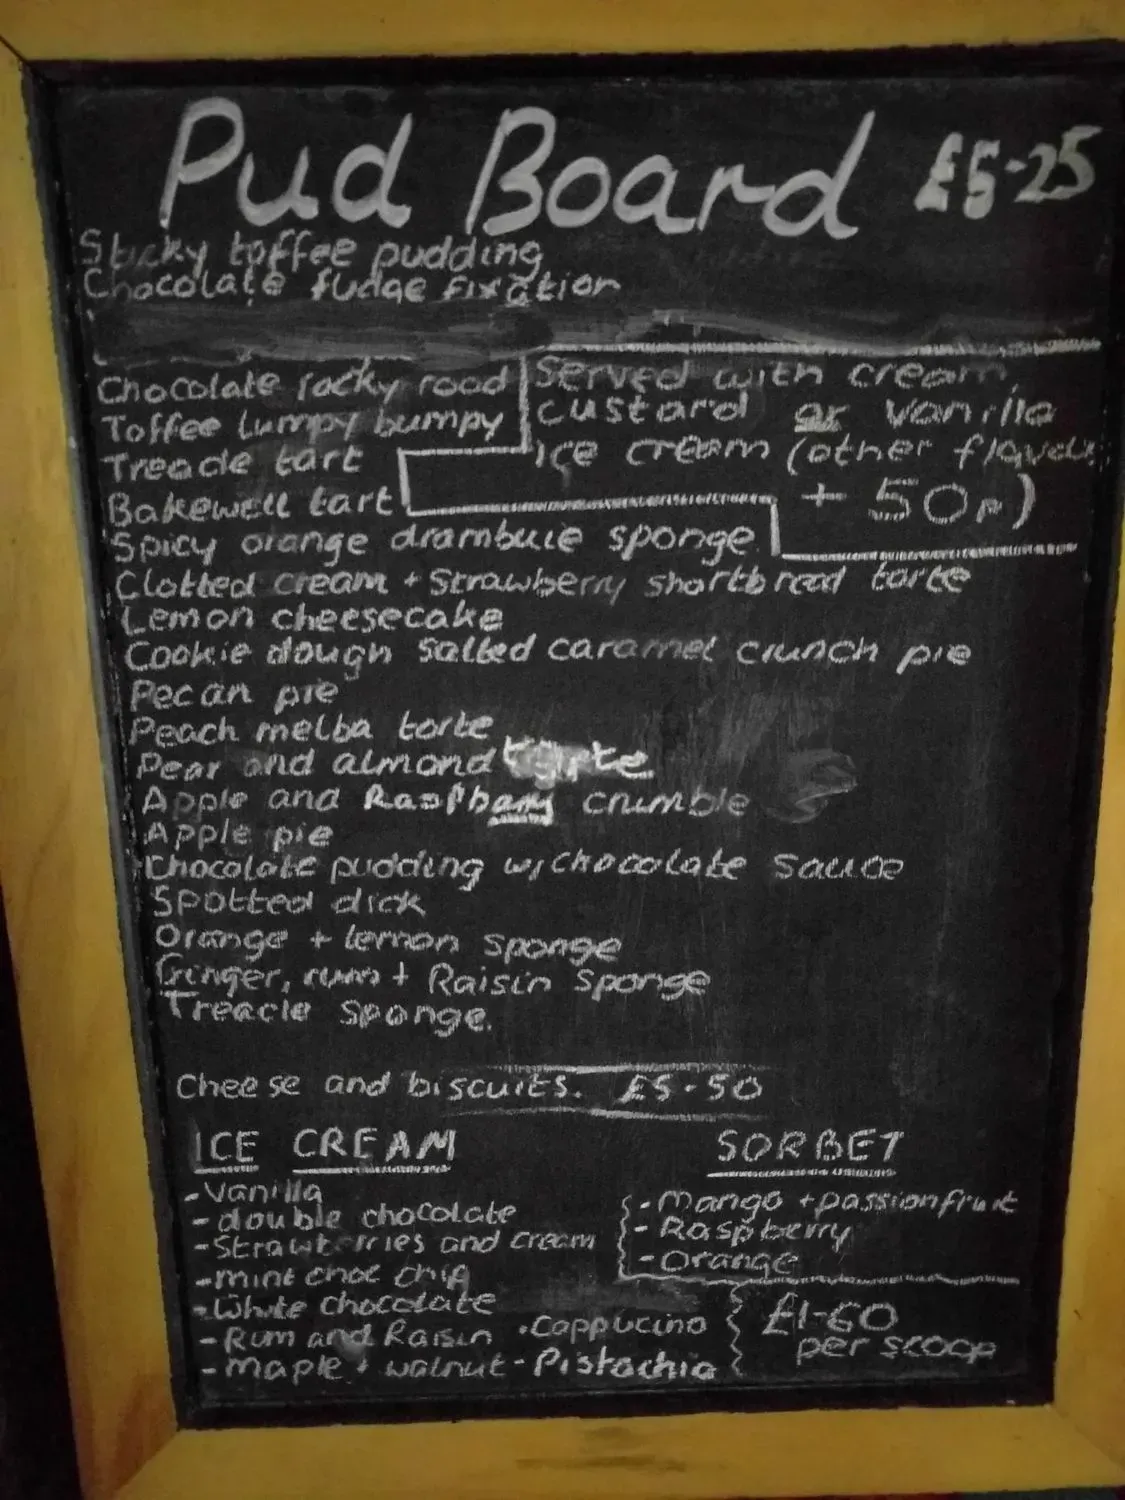 Pud Board £5-25
Sticky toffee pudding
Chocolate fudge fixation
Chocolate rocky rood
Toffee lumpy bumpy
Served with cream,
custard or vanilla
ice cream (other flavours
+ 50p)
Treacle tart
Bakewell tart
Spicy orange drambuie sponge
Clotted cream + Strawberry shortbread torte
Lemon cheesecake
Cookie dough Salted caramel crunch pie
Pecan pie
Peach melba torte
Pear and almond torte
Apple and Raspberry crumble
Apple pie
Chocolate pudding w/chocolate sauce
Spotted dick
Orange + lemon sponge
Ginger, rum + Raisin Sponge
Treacle Sponge.
Cheese and biscuits. £5-50
ICE CREAM
- Vanilla
- double chocolate
- Strawberries and cream
- mint choc chip
- White chocolate
- Rum and Raisin • Cappucino
- maple + walnut - Pistachio
SORBET
- Mango + passionfruit
- Raspberry
- Orange
£1-60
per scoop